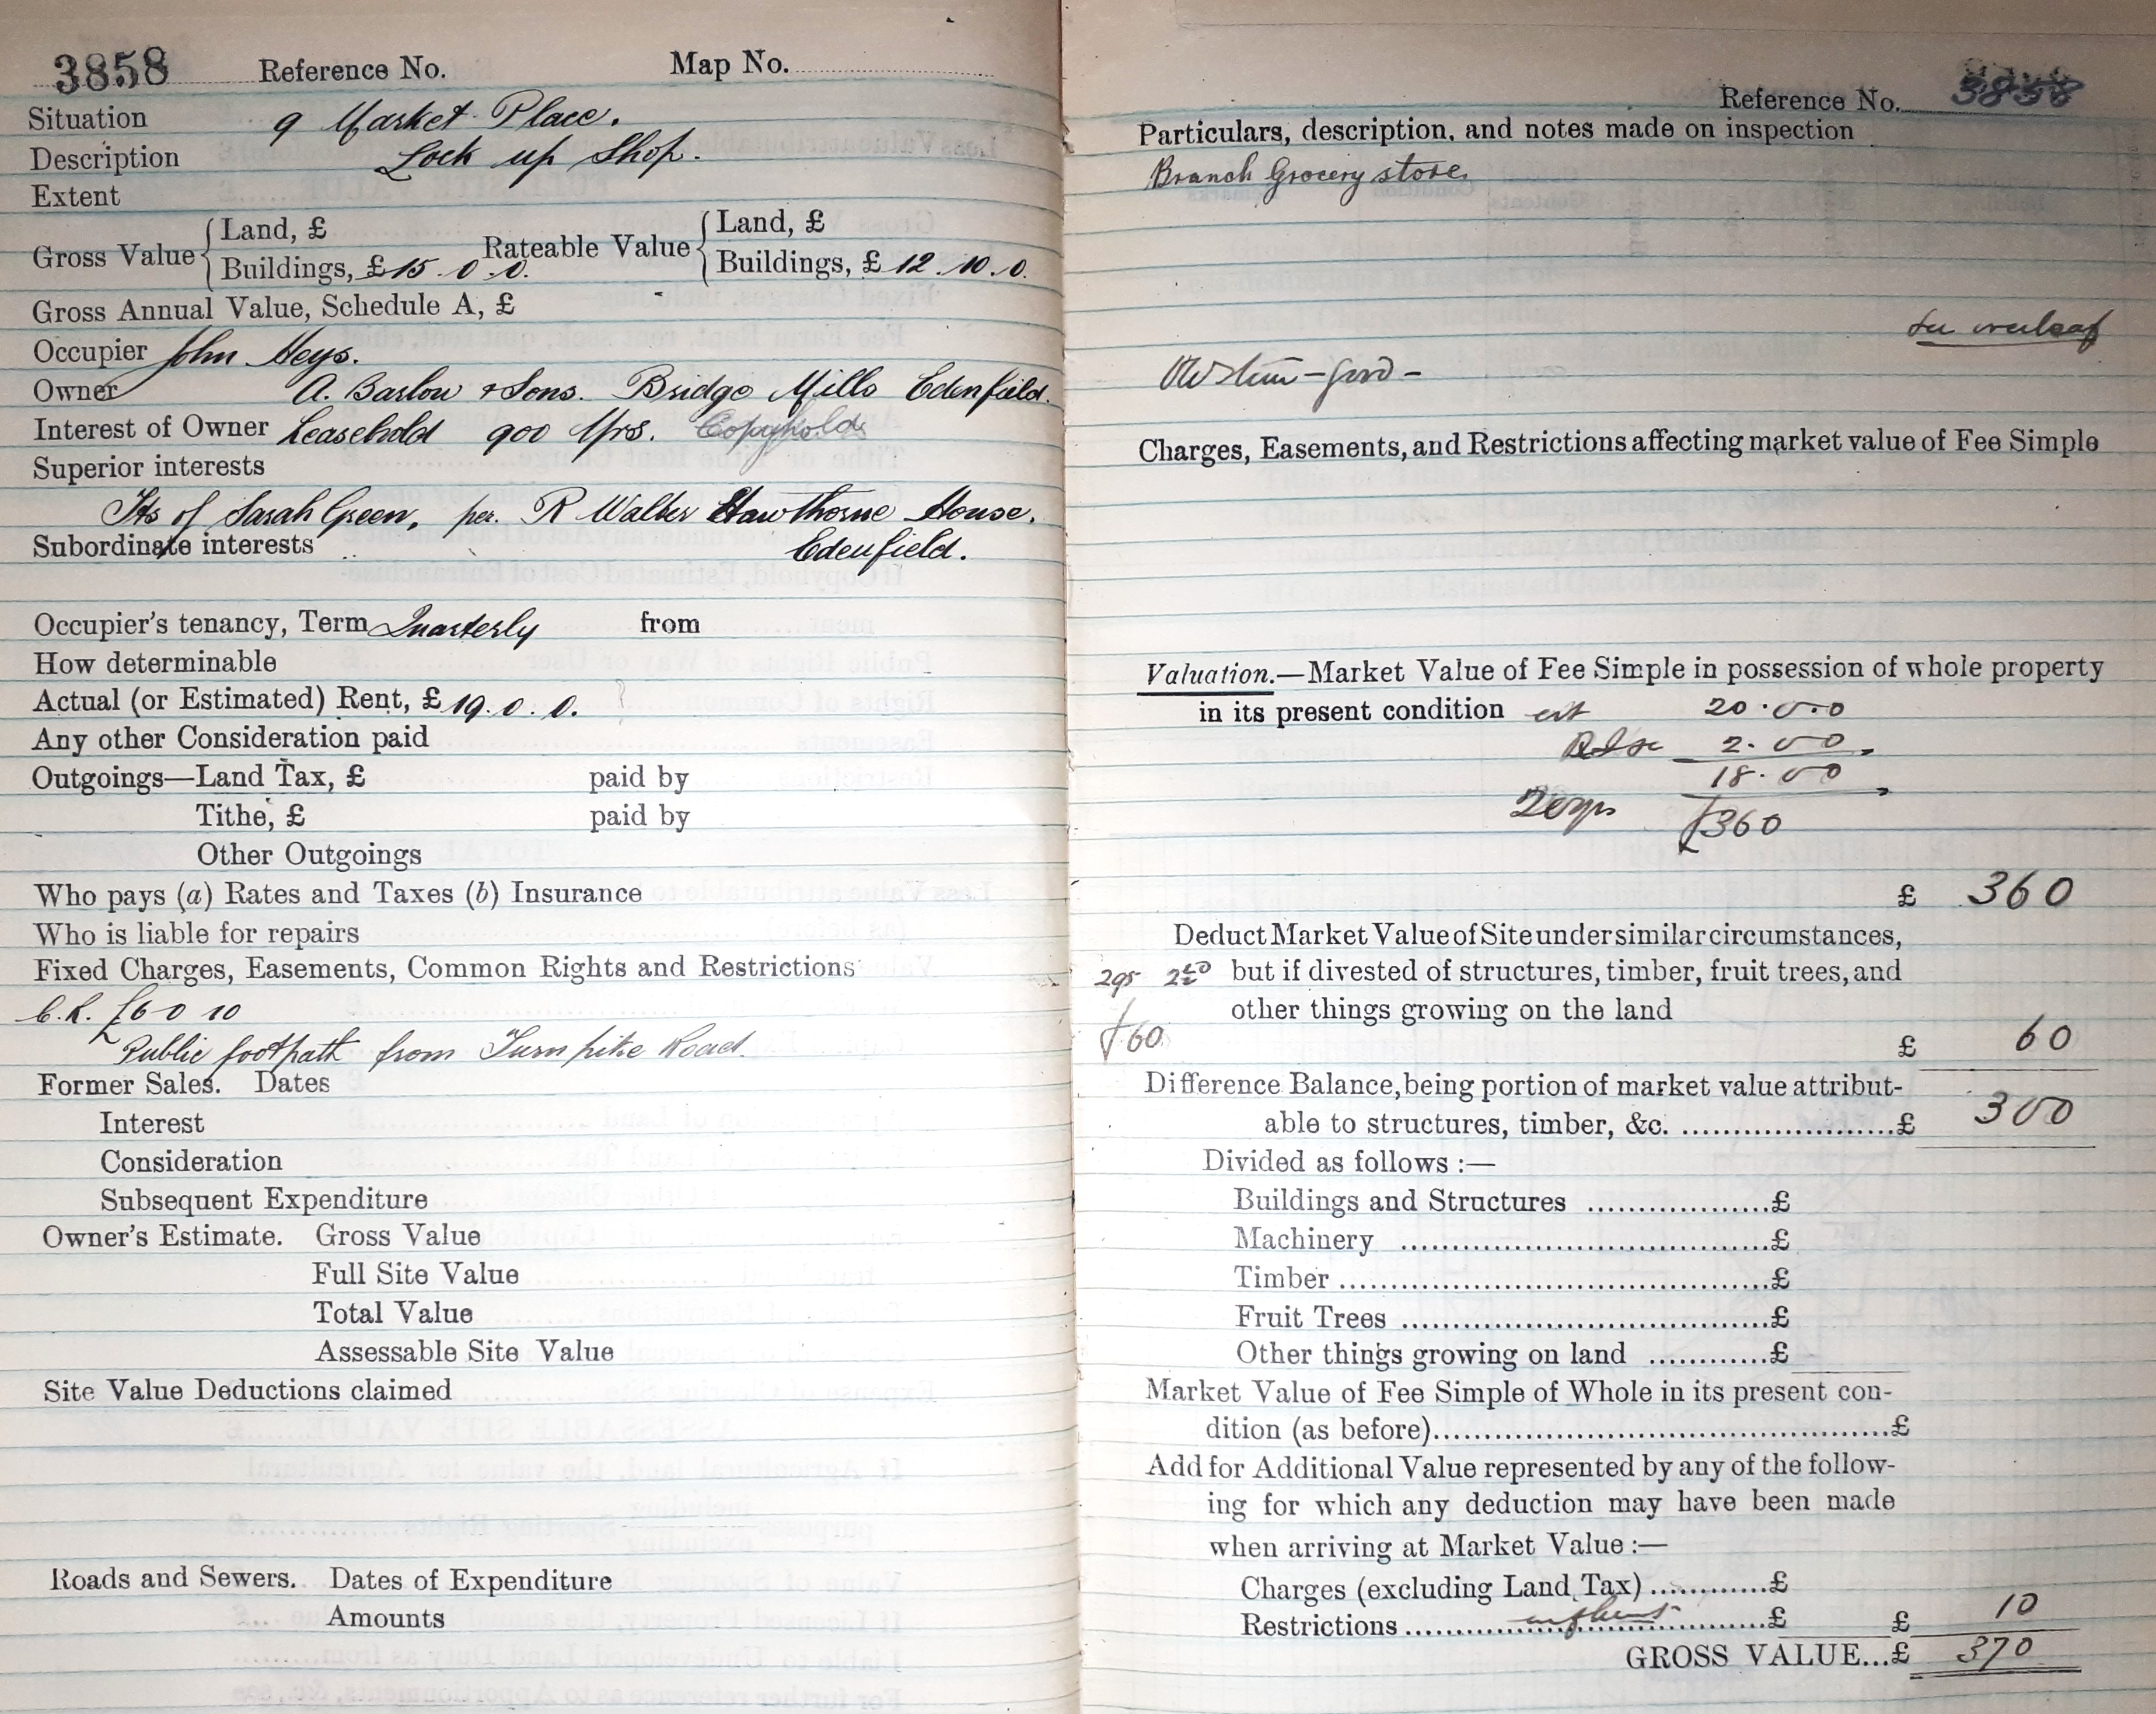 3858 Reference No. Map No.
Situation 9 Market Place.
Description Lock up Shop.
Extent
Gross Value { Land, £ Rateable Value { Land, £
Buildings, £ 15 . 0 . 0. Buildings, £ 12 . 10 . 0.
Gross Annual Value, Schedule A, £
Occupier John Heys.
Owner A. Barlow & Sons. Bridge Mills Edenfield.
Interest of Owner Leasehold 900 Yrs. Copyhold
Superior interests
of Sarah Green, per. R Walker Hawthorne House.
Subordinate interests Edenfield.
Occupier's tenancy, Term Quarterly from
How determinable
Actual (or Estimated) Rent, £ 19. 0 . 0.
Any other Consideration paid
Outgoings—Land Tax, £ paid by
Tithe, £ paid by
Other Outgoings
Who pays (a) Rates and Taxes (b) Insurance
Who is liable for repairs
Fixed Charges, Easements, Common Rights and Restrictions
C.R. £6 0 10
Public footpath from Turnpike Road.
Former Sales. Dates
Interest
Consideration
Subsequent Expenditure
Owner's Estimate. Gross Value
Full Site Value
Total Value
Assessable Site Value
Site Value Deductions claimed
Roads and Sewers. Dates of Expenditure
Amounts
Reference No. 3858
Particulars, description, and notes made on inspection
Branch Grocery store
See overleaf
Charges, Easements, and Restrictions affecting market value of Fee Simple
Valuation.—Market Value of Fee Simple in possession of whole property
in its present condition est 20 . 0 . 0
2 . 0 0
18 . 0 0
20 yrs £360
£ 360
Deduct Market Value of Site under similar circumstances,
but if divested of structures, timber, fruit trees, and
other things growing on the land
£60
£ 60
Difference Balance, being portion of market value attribut-
able to structures, timber, &c. ........................£ 300
Divided as follows :—
Buildings and Structures ...................£
Machinery .......................................£
Timber .............................................£
Fruit Trees ......................................£
Other things growing on land ............£
Market Value of Fee Simple of Whole in its present con-
dition (as before)................................................£
Add for Additional Value represented by any of the follow-
ing for which any deduction may have been made
when arriving at Market Value :—
Charges (excluding Land Tax) ............£
Restrictions ......................................£ £ 10
GROSS VALUE...£ 370